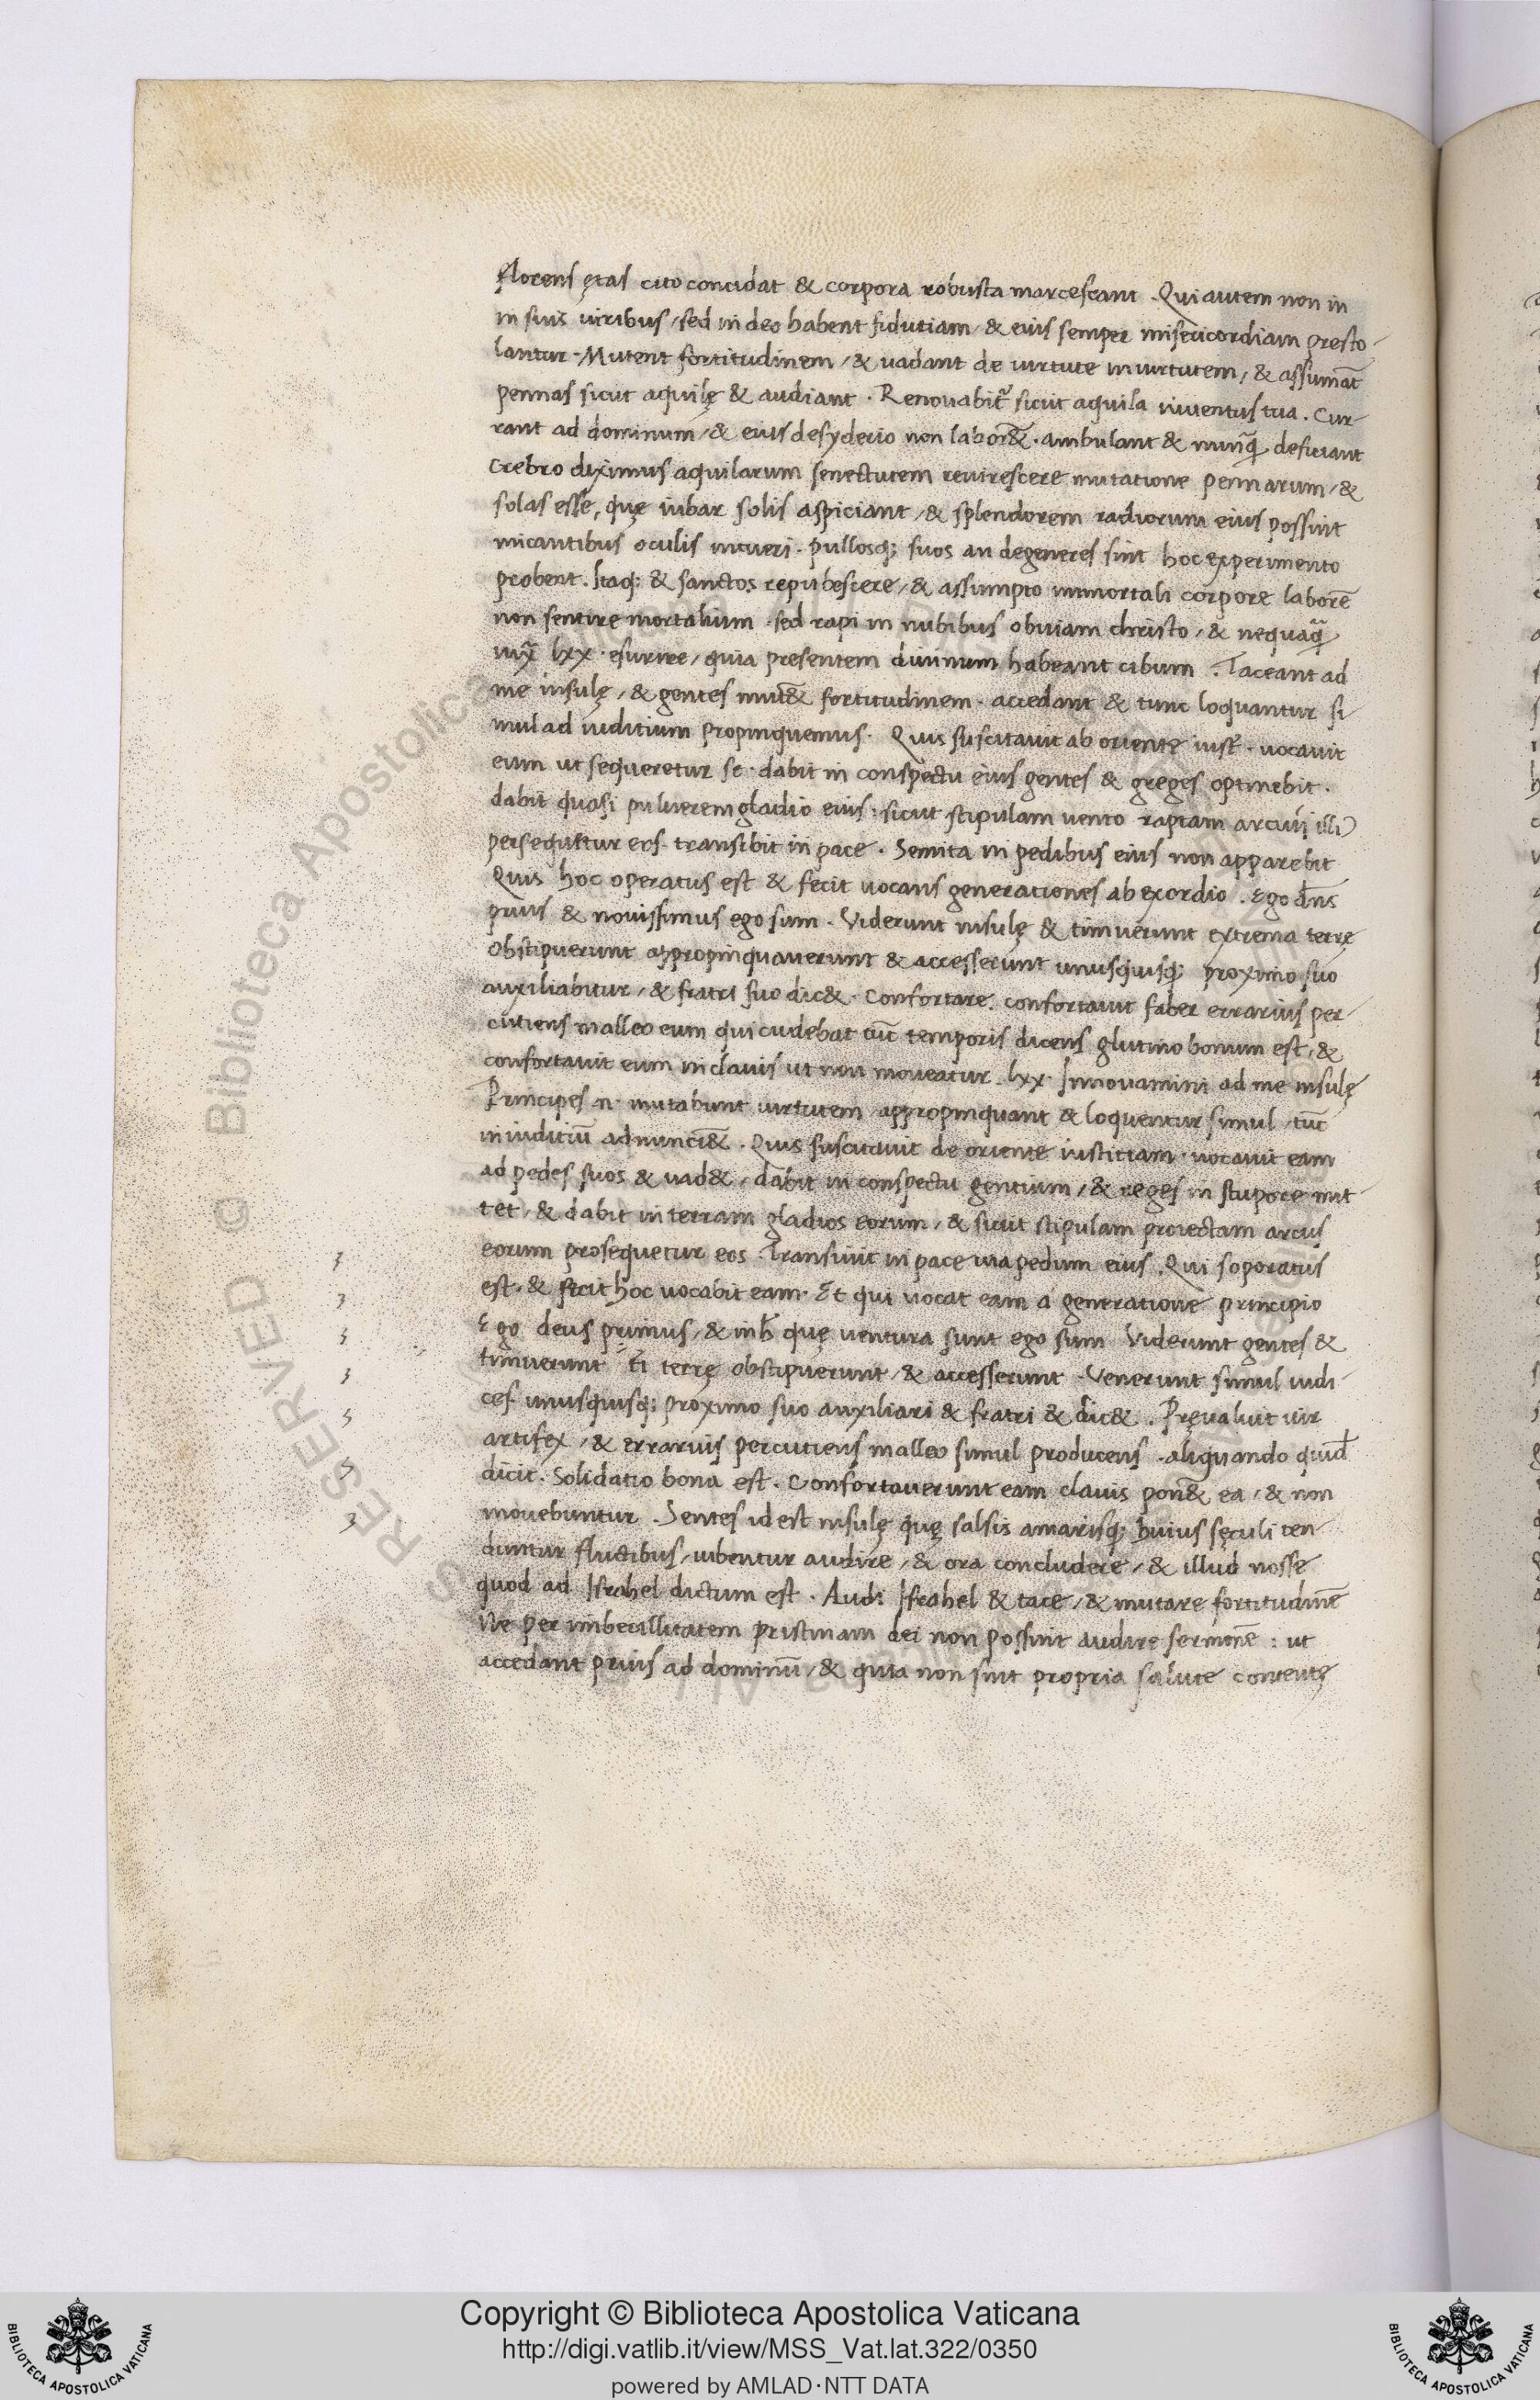 florens ętas cito concidat & corpora robusta marcescant . Qui autem non in
in suis uiribus / sed in deo habent fidutiam / & eius semper misericordiam presto-
lantur . Mutent fortitudinem / & uadant de uirtute in uirtutem / & assumāt
pennas sicut aquilę & audiant . Renouabit̃ sicut aquila iuuentus tua . Cur-
rant ad dominum / & eius desyderio non labor& . ambulant & nunq̃ deficiant
Crebro diximus aquilarum senectutem reuirescere mutatione pennarum / &
solas esse, quę iubar solis aspiciant / & splendorem radiorum eius possint
micantibus oculis intueri . pullosq; suos an degeneres sint hoc experimento
probent . Itaq; & sanctos repubescere / & assumpto immortali corpore laborē
non sentire mortalium . sed rapi in nubibus obuiam christo / & nequaq̃
lxx . esurire / quia presentem diuinum habeant cibum . Taceant ad
me insulę / & gentes mut& fortitudinem . accedant & tunc loquantur si-
mul ad iuditium propinquemus . Quis suscitauit ab oriente iust̃ . uocauit
eum ut sequeretur se . dabit in conspectu eius gentes & greges optinebit .
dabit quasi puluerem gladio eius : sicut stipulam uento raptam arcui illi
persequetur eos . transibit in pace . Semita in pedibus eius non apparebit
Quis hoc operatus est & fecit uocans generationes ab exordio . Ego dn̄s
prius & nouissimus ego sum . Viderunt insulę & timuerunt extrema terrę
obstipuerunt appropinquauerunt & accesserunt unusquisq; proximo suo
auxiliabitur / & fratri suo dic& . Confortare . confortauit faber errarius per-
cutiens malleo eum qui cudebat tūc temporis dicens glutino bonum est / &
confortauit eum in clauis ut non moueatur . lxx . Innouamini ad me insulę
Principes .n. mutabunt uirtutem appropinquant & loquentur simul / tūc
in iuditiū adnunci& . Quis suscitauit de oriente iusticiam . uocauit eam
ad pedes suos & uad& / dabit in conspectu gentium / & reges in stupore mit-
tet / & dabit in terram gladios eorum / & sicut stipulam proiectam arcus
eorum prosequetur eos . Transiuit in pace uia pedum eius . Qui soporatus
est . & fecit hoc uocabit eam . Et qui uocat eam a generatione principio
Ego deus primus / & in h̄ quę uentura sunt ego sum Viderunt gentes &
timuerunt terrę obstipuerunt / & accesserunt . Venerunt simul iudi-
ces . unusquisq; proximo suo auxiliari & fratri & dic& . Pręualuit uir
artifex / & errarius percutiens malleo simul producens . aliquando quid̄
dicit . Solidatio bona est . Confortauerunt eam clauis pon& ea / & non
mouebuntur . Gentes id est insulę quę salsis amarisq; huius sęculi ten-
duntur fluctibus / iubentur audire / & ora concludere / & illud nosse
quod ad Israhel dictum est . Audi Israhel & tace / & mutare fortitudinē
Ne per imbecillitatem pristinam dei non possint audire sermonē : ut
accedant prius ad dominū / & quia non sint propria salute contentę
© Biblioteca Apostolica Vaticana
Copyright © Biblioteca Apostolica Vaticana
http://digi.vatlib.it/view/MSS_Vat.lat.322/0350
powered by AMLAD·NTT DATA
BIBLIOTECA APOSTOLICA VATICANA
BIBLIOTECA APOSTOLICA VATICANA